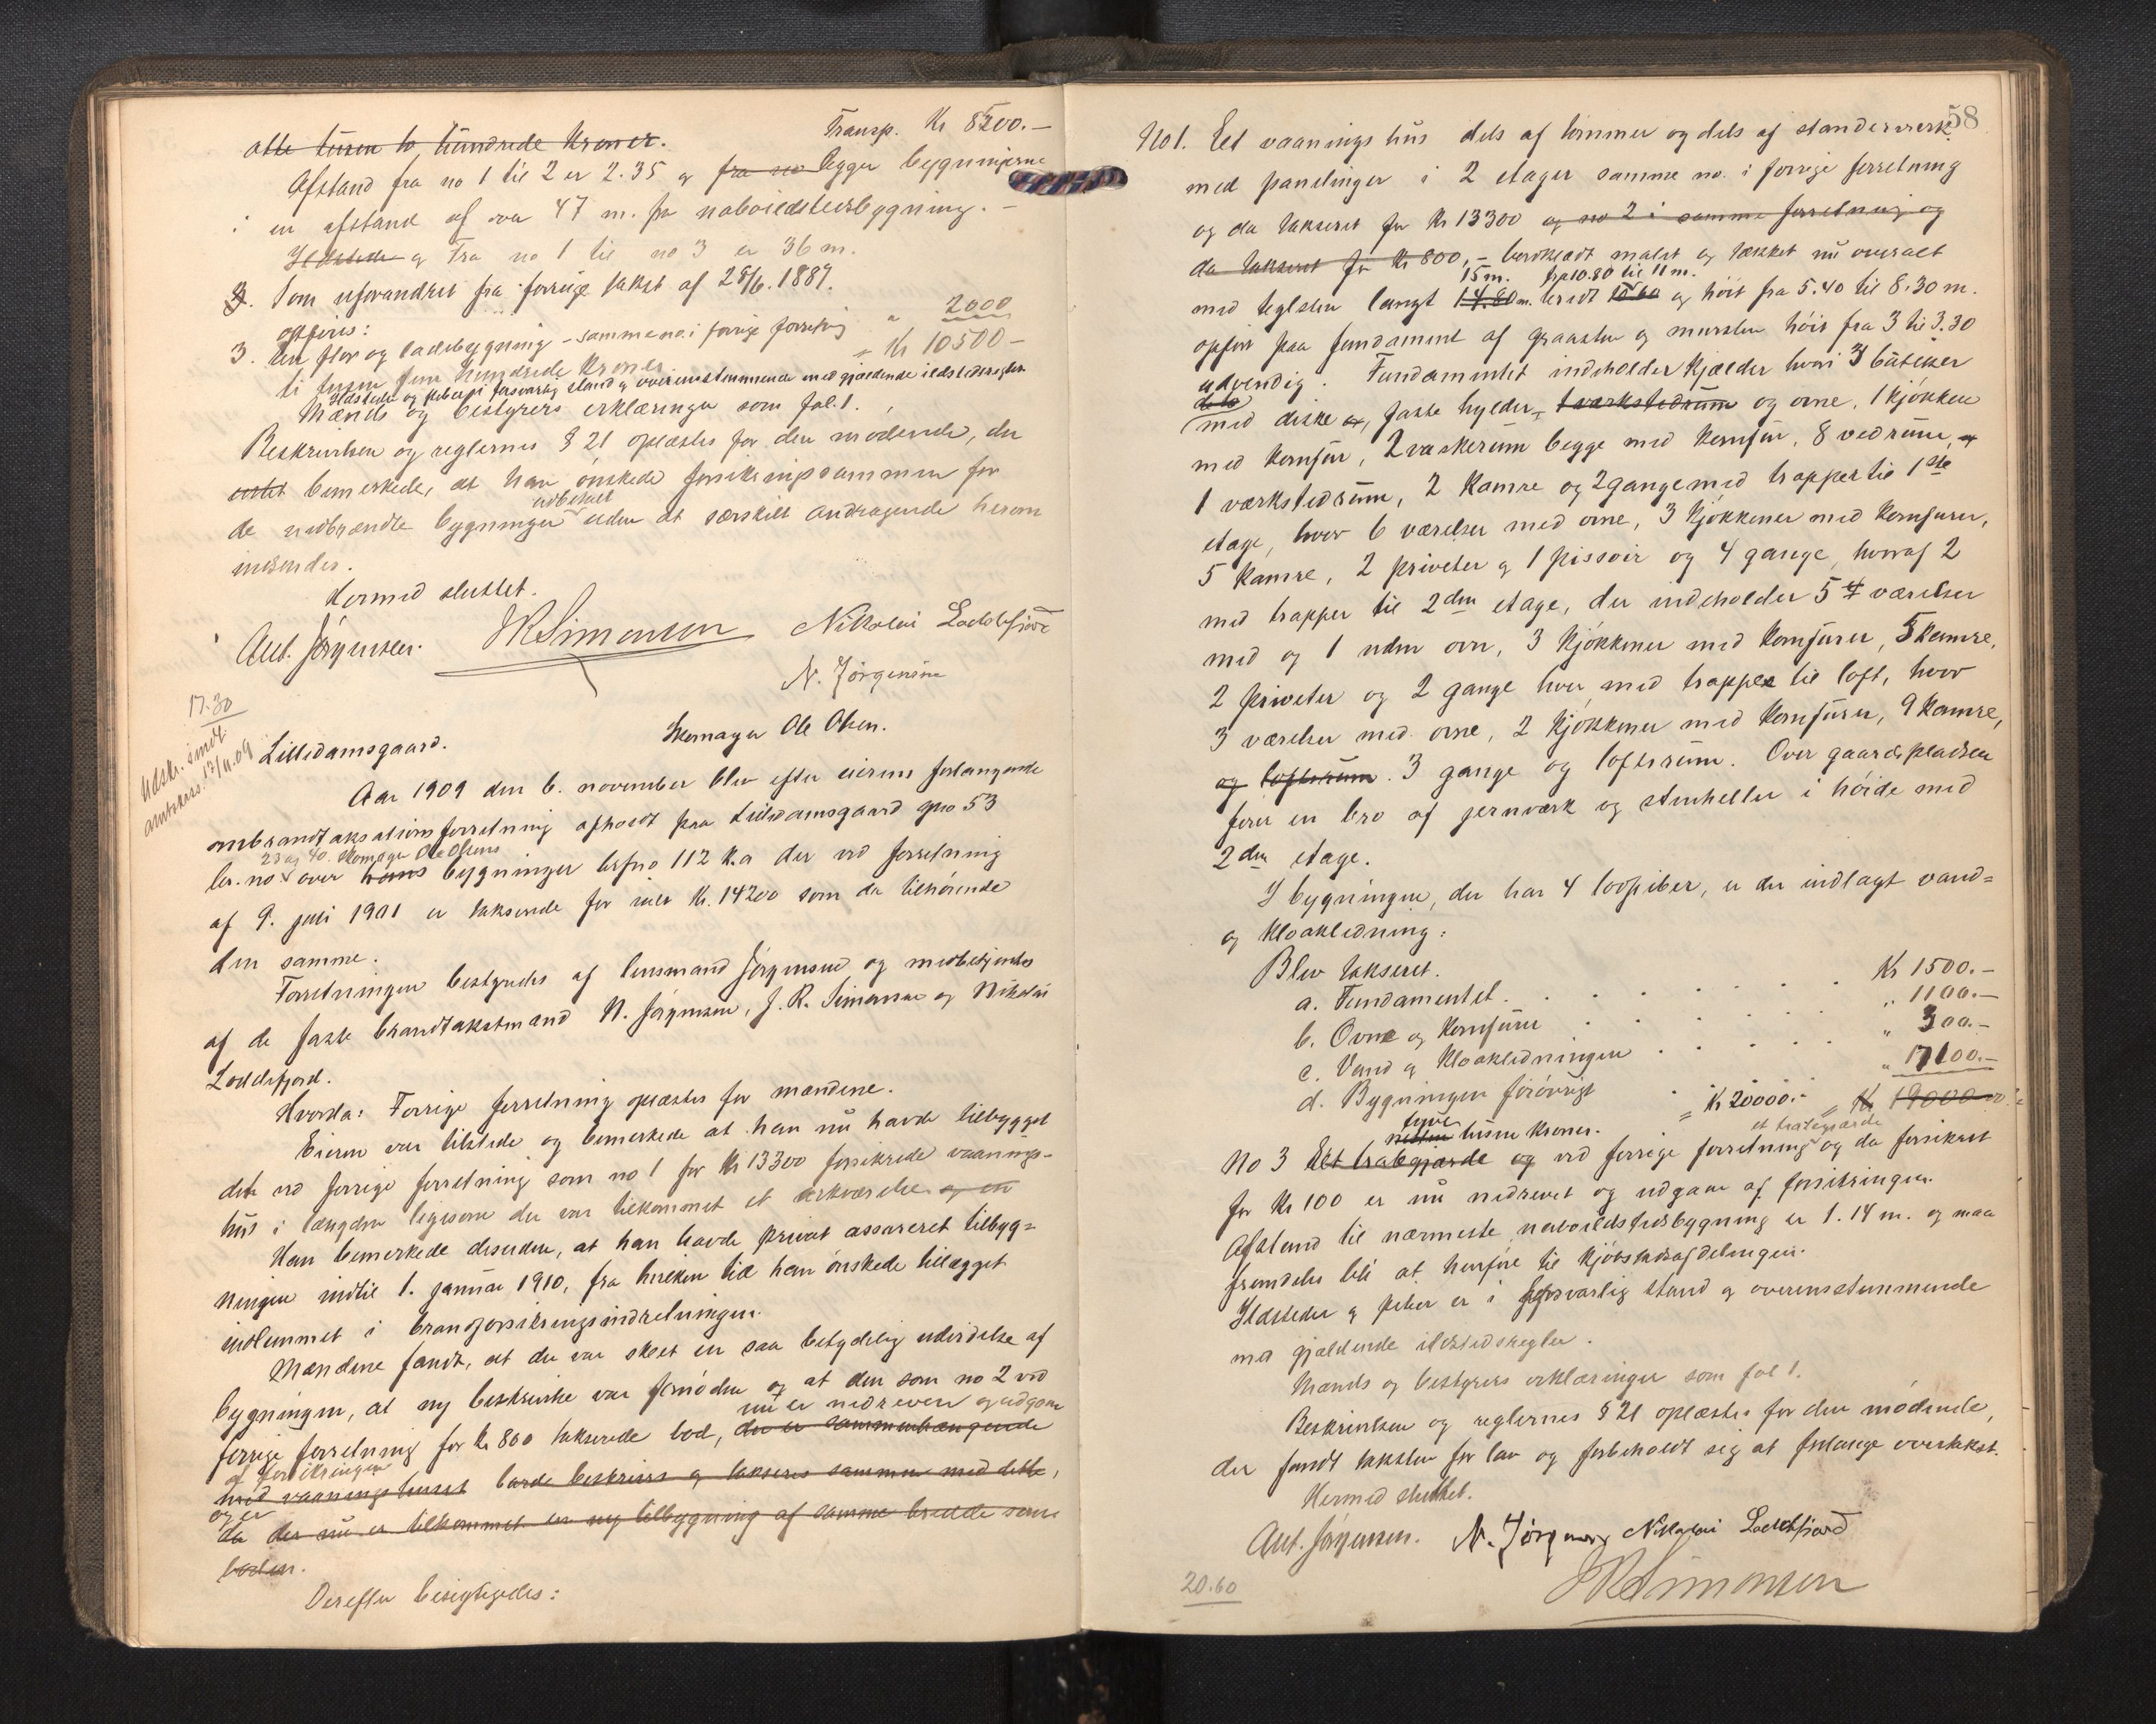 Transp. Kr 8500.—
otte tusen to hundrede kroner.
Afstand fra no 1 til 2 er 2.35 og fra no ligger bygningerne
i en afstand af 47 m. fra naboildstedsbygning. —
Ildstede og Fra no 1 til no 3 er 36 m.
Som uforandret fra forrige takst af 28/6. 1887.
opføres:
3. En flor og ladebygning – samme no. i forrige forretning " 2000
" Kr 10500 —
ti tusen fem hundrede kroner
Ildsteder og piber i forsvarlig stand og overensstemmende med gjældende ildstedsregler
Mænds og bestyrers erklæringer som fol. 1.
Beskrivelsen og reglernes § 21 oplæstes for den mødende, der
bemerkede, at han ønskede forsikringssummen for
de nedbrændte bygninger udbetalt uden at særskilt andragende herom
indsendes.
Hermed sluttet.
Ant. Jørgensen. J R Simonsen Nikolai Loddefjord
N. Jørgensen
17.30
Udskr. sendt
17/11.09
Lillidamsgaard. Skomager Ole Olsen.
Aar 1909 den 6. november blev efter eierens forlangende
ombrandtaksationsforretning afholdt paa Lillidamsgaard gno 53
br. no 23 og 40. over hans Skomager Ole Olsens bygninger brfno 112 k.a der ved forretning
af 9. juli 1901 er takserede for ialt Kr. 14200 som da tilhørende
den samme.
Forretningen bestyredes af lensmand Jørgensen og medbetjentes
af de faste brandtakstmænd N. Jørgensen, J. R. Simonsen og Nikolai
Loddefjord.
Hvorda: Forrige forretning oplæstes for mændene.
Eieren var tilstede og bemerkede at han nu havde tilbygget
det ved forrige forretning som no 1 for Kr 13300 forsikrede vaanings-
hus i længden ligesom der var tilkommet et arkværelse og en
Han bemerkede desuden, at han havde privat assureret tilbyg=
ningen indtil 1. januar 1910, fra hvilken tid han ønskede tillægget
indlemmet i brandforsikringsindretningen.
Mændene fandt, at der var skeet en saa betydelig udvidelse af
bygningen, at ny beskrivelse var fornøden og at den som no 2 ved
forrige forretning for Kr 800 takserede bod, der er sammenhængende nu er nedreven og udgaar
af forsikringen
med vaaningshuset burde beskrives og takseres sammen med dette,
og er
da der nu er tilkommet en ny tilbygning af samme bredde som
boden.
Derefter besigtigedes:
58
No 1. Et vaaningshus dels af tømmer og dels af standerverk
med panelinger i 2 etager samme no. i forrige forretning
og da takseret for Kr 13300 og no 2 i samme forretning og
da takseret for Kr 800, – bordklædt malet og tækket nu overalt
med teglsten langt 14.80 15 m. bredt 10.60 fra 10.80 til 11 m. og høit fra 5.40 til 8.30 m.
opført paa fundament af graasten og mursten høit fra 3 til 3.30
udvendig. Fundamentet indeholder kjælder hvori 3 butikker
med diske og faste hylder, 1 værkstedrum og ovne, 1 kjøkken
med komfur, 2 vaskerum begge med komfur, 8 vedrum, og
1 værkstedrum, 2 kamre og 2 gange med trapper til 1ste
etage, hvor 6 værelser med ovne, 3 kjøkkener med komfurer,
5 kamre, 2 priveter og 1 pissoir og 4 gange, hvoraf 2
med trapper til 2den etage, der indeholder 5 4 værelser
med og 1 uden ovn, 3 kjøkkener med komfurer, 5 kamre,
2 priveter og 2 gange hver med trapper til loft, hvor
3 værelser med ovne, 2 kjøkkener med komfurer, 9 kamre,
og loftsrum. 3 gange og loftsrum. Over gaardspladsen
fører en bro af jernværk og stenheller i høide med
2den etage.
I bygningen, der har 4 løbpiber, er der indlagt vand=
og kloakledning:
Blev takseret.
a. Fundamentet. Kr 1500.—
b. Ovne og komfurer " 1100.—
c. Vand og kloakledningen " 300.—
d. Bygningen forøvrigt " 17100.—
" Kr 20000.- " Kr 19000.00
nitten tyve tusen kroner.
No 3 Et træbgjærde og ved forrige forretning og da forsikret
for Kr 100 er nu nedrevet og udgaar af forsikringen.
Afstand til nærmeste naboildstedsbygning er 1.14 m. og maa
fremdeles bli at henføre til kjøbstadsafdelingen.
Ildsteder og piber er i forsvarlig stand og overensstemmende
med gjældende ildstedsregler.
Mænds og bestyrers erklæringer som fol 1.
Beskrivelsen og reglernes § 21 oplæstes for den mødende,
der fandt taksten for lav og forbeholdt sig at forlange overtakst.
Hermed sluttet.
Ant. Jørgensen. N. Jørgensen Nikolai Loddefjord
J R Simonsen
20.60